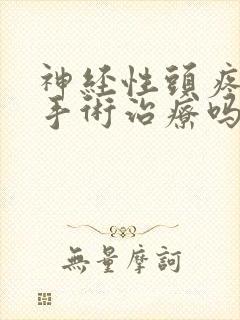 神経性頭疼
手術治療吗
無量摩訶